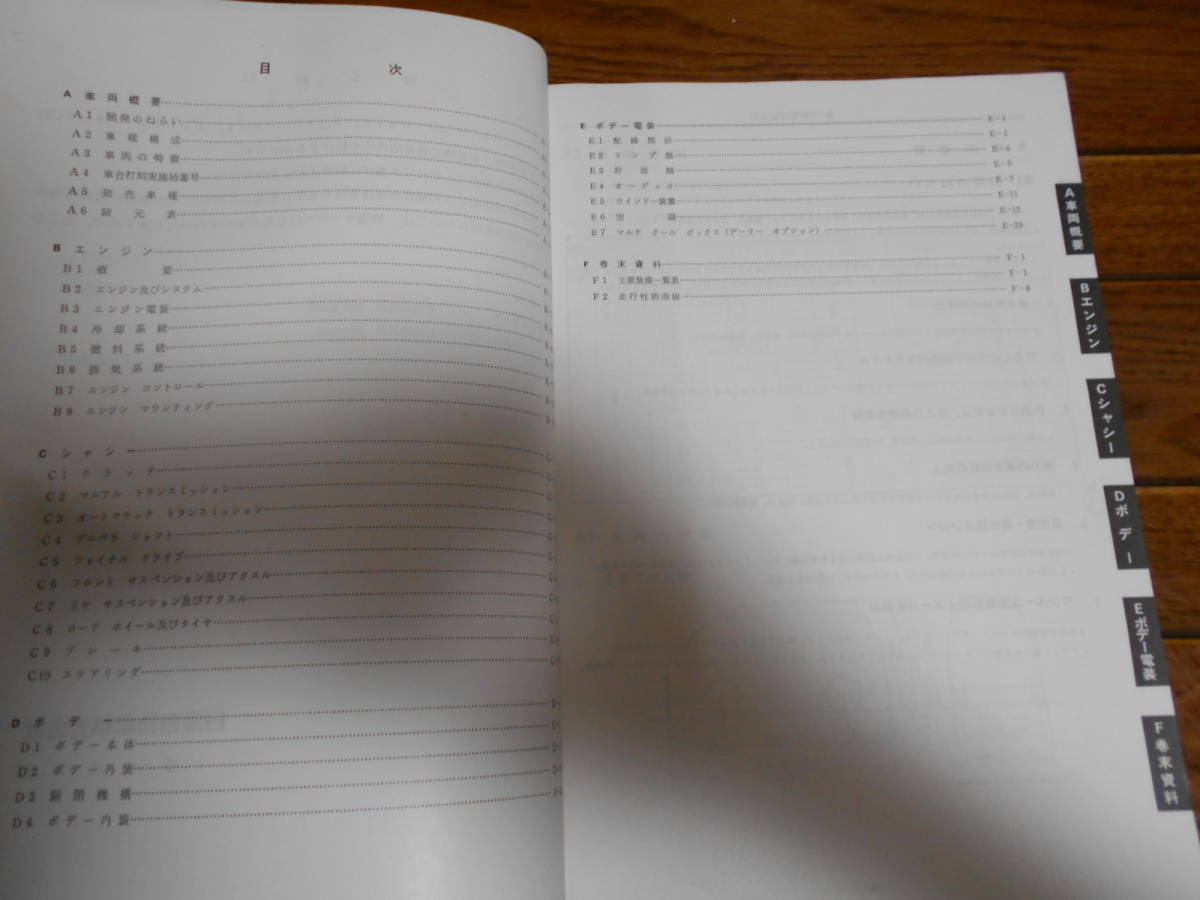 目 次
A 車両概要
A1 開発のねらい
A2 車種構成
A3 車両の特徴
A4 車台打刻実施始番号
A5 発売車種
A6 諸元表
B エンジン
B1 概要
B2 エンジン及びシステム
B3 エンジン電装
B4 冷却系統
B5 燃料系統
B6 排気系統
B7 エンジン コントロール
B8 エンジン マウンティング
C シャシー
C1 クラッチ
C2 マニアル トランスミッション
C3 オートマチック トランスミッション
C4 プロペラ シャフト
C5 ファイナル ドライブ
C6 フロント サスペンション及びアクスル
C7 リヤ サスペンション及びアクスル
C8 ロード ホイール及びタイヤ
C9 ブレーキ
C10 ステアリング
D ボデー
D1 ボデー本体
D2 ボデー外装
D3 開閉機構
D4 ボデー内装
E ボデー電装 E-1
E1 配線関係 E-1
E2 ランプ類 E-4
E3 計器類 E-5
E4 オーディオ E-7
E5 ウインドー装置 E-11
E6 空調 E-12
E7 マルチ クール ボックス（デーラー オプション） E-23
F 巻末資料 F-1
F1 主要装備一覧表 F-1
F2 走行性能曲線 F-8
A車両概要
Bエンジン
Cシャシー
Dボデー
Eボデー電装
F巻末資料